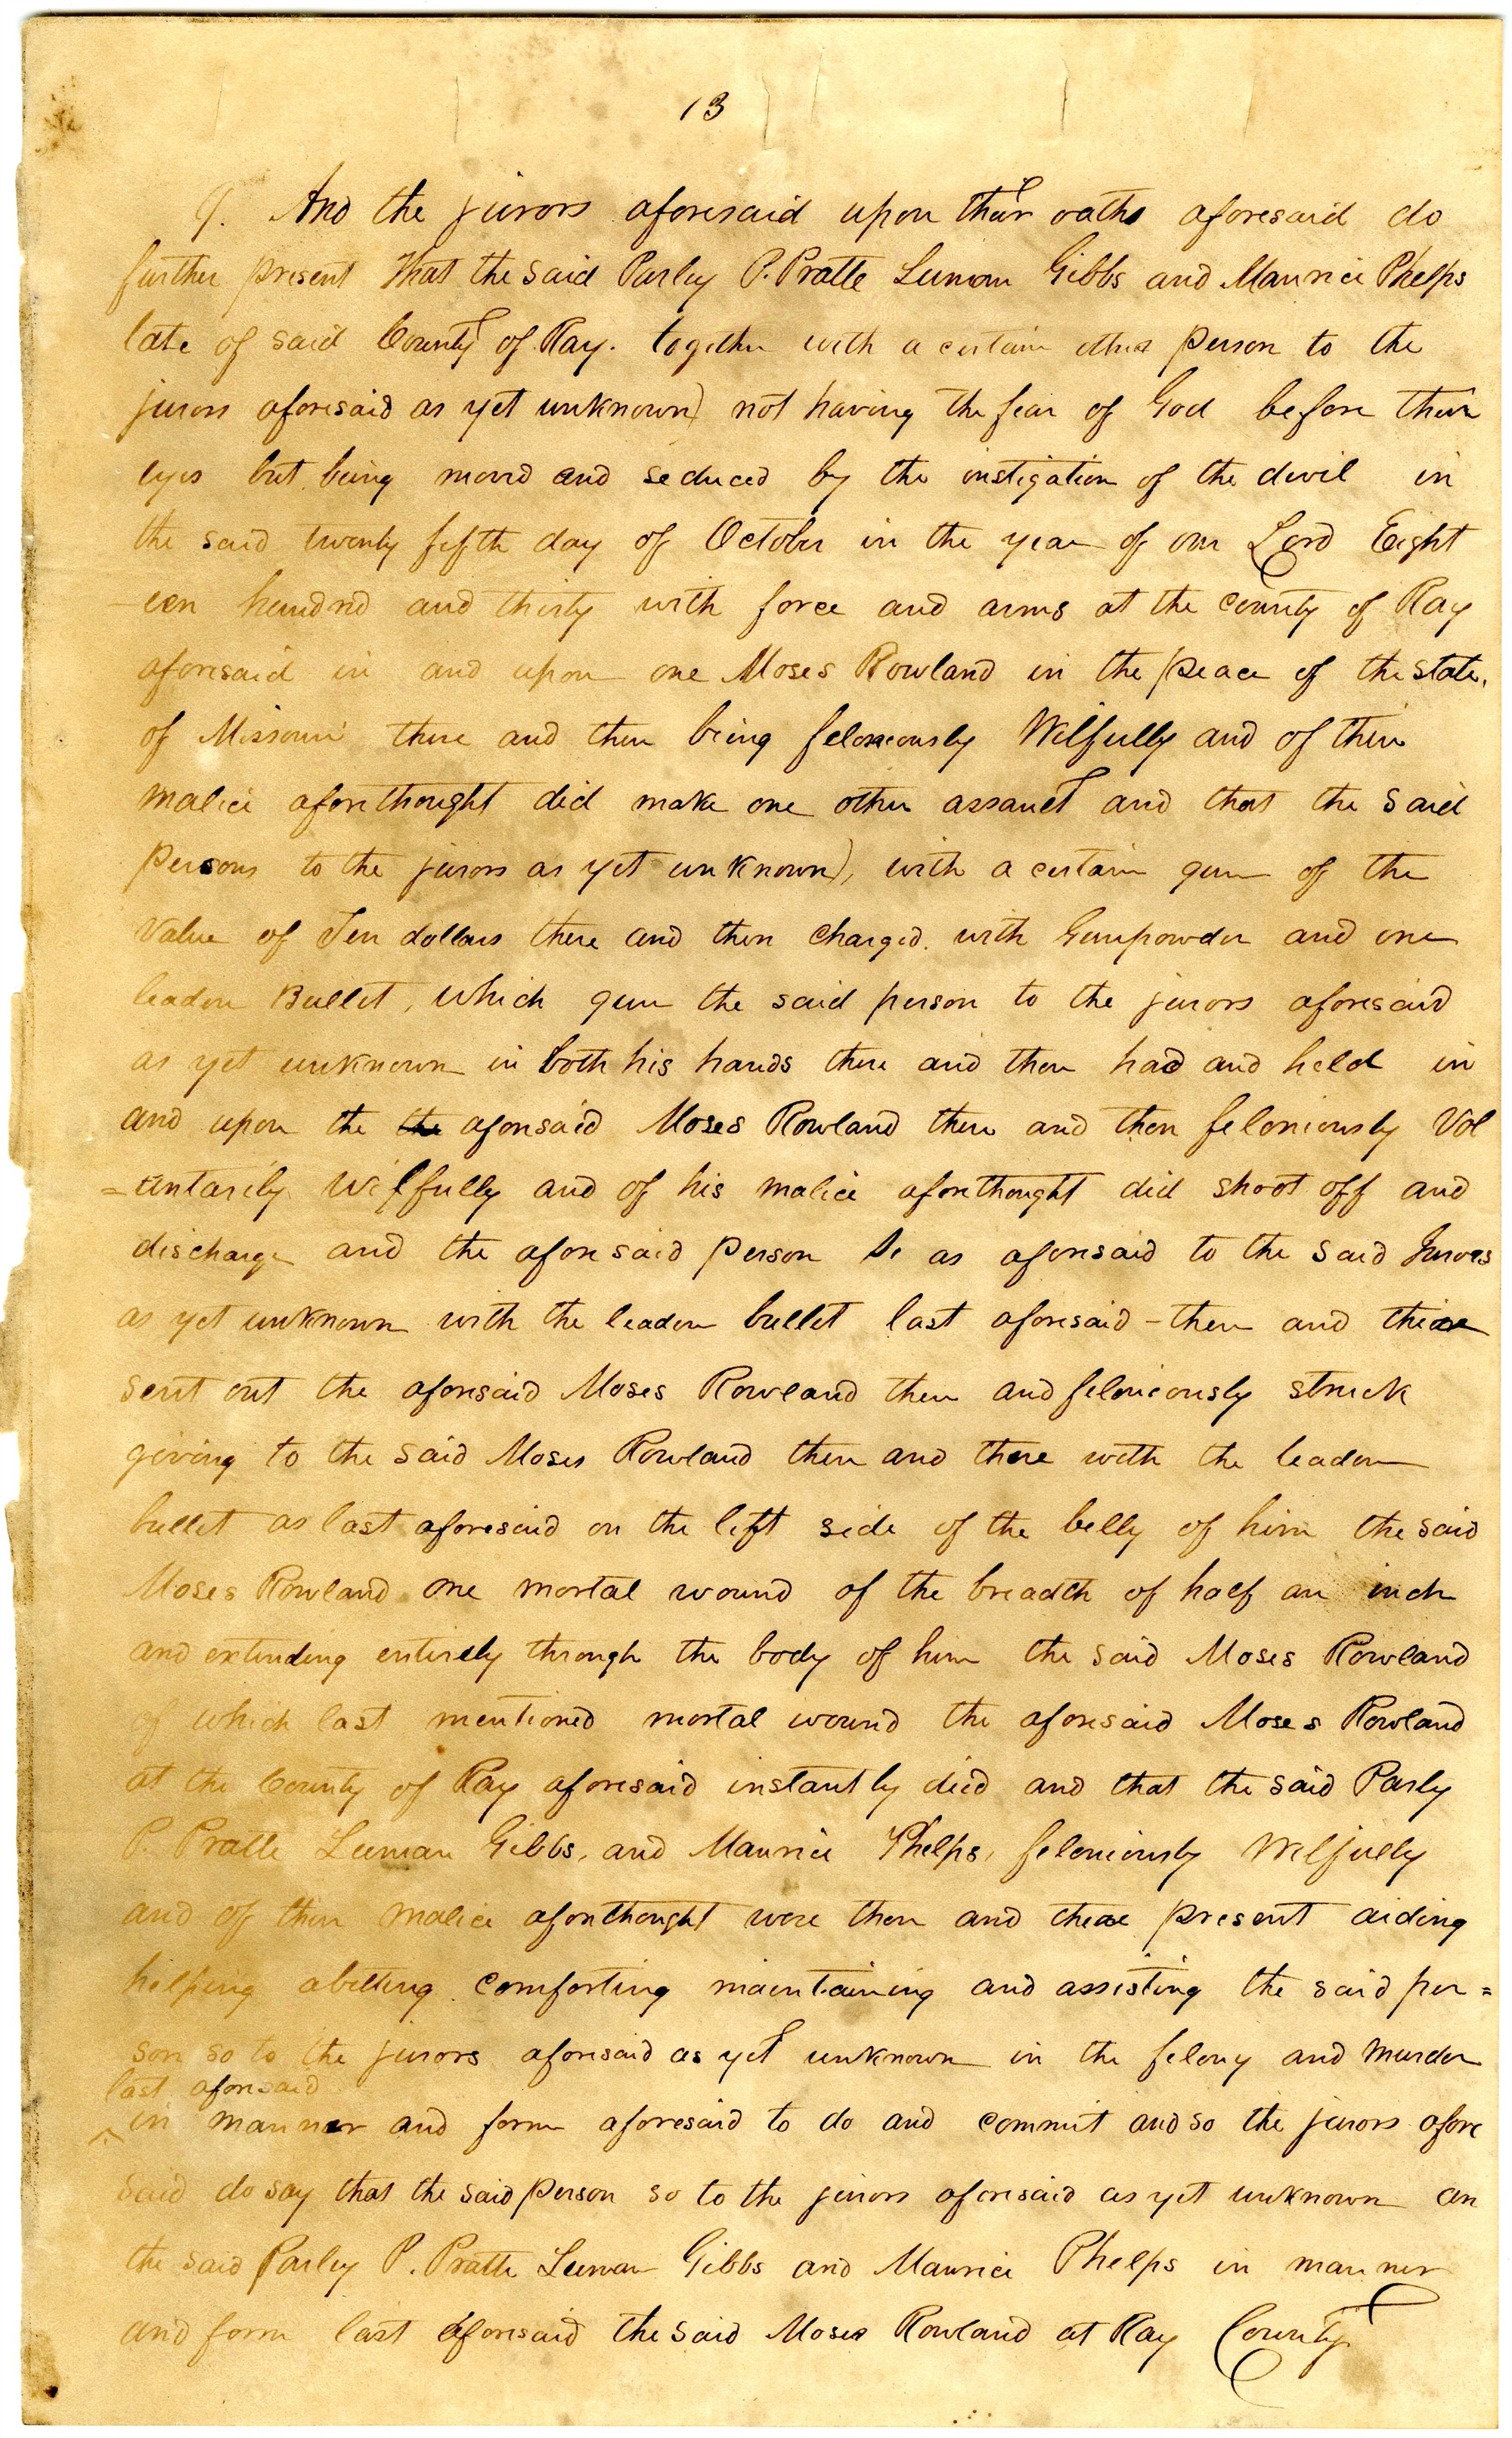 13
9. And the jurors aforesaid upon their oaths aforesaid do
further present that the said Parley P. Pratte Luman Gibbs and Maurice Phelps
late of said County of Ray. together with a certain other person to the
jurors aforesaid as yet unknown) not having the fear of God before their
eyes but being moved and seduced by the instigation of the devil in
the said twenty fifth day of October in the year of our Lord Eight
-een hundred and thirty with force and arms at the county of Ray
aforesaid in and upon one Moses Rowland in the peace of the state.
of Missouri there and then being feloneously Wilfully and of their
malice aforethought did make one other assault and that the said
Persons to the jurors as yet unknown), with a certain gun of the
value of Ten dollars there and then charged. with Gunpowder and one
leaden Bullet, which gun the said person to the jurors aforesaid
as yet unknown in both his hands there and then had and held in
and upon the the aforesaid Moses Rowland there and then feloniously Vol
=untarily wilfully and of his malice aforethought did shoot off and
discharge and the aforesaid person so as aforesaid to the said Jurors
as yet unknown with the leaden bullet last aforesaid - then and there
sent out the aforesaid Moses Rowland then and feloniously struck
giving to the said Moses Rowland then and there with the leaden
bullet as last aforesaid on the left side of the belly of him the said
Moses Rowland one mortal wound of the breadth of half an inch
and extending entirely through the body of him the said Moses Rowland
of which last mentioned mortal wound the aforesaid Moses Rowland
at the County of Ray aforesaid instantly died and that the said Parly
P. Pratte Luman Gibbs, and Maurice Phelps, feloniously Wilfully
and of their malice aforethought were then and there present aiding
helping abetting comforting maintaining and assisting the said per=
son so to the jurors aforesaid as yet unknown in the felony and murder
last aforesaid
^ in manner and form aforesaid to do and commit and so the jurors afore
said do say that the said person so to the jurors aforesaid as yet unknown an
the said Parley P. Pratte Luman Gibbs and Maurice Phelps in manner
and form last aforesaid the said Moses Rowland at Ray County